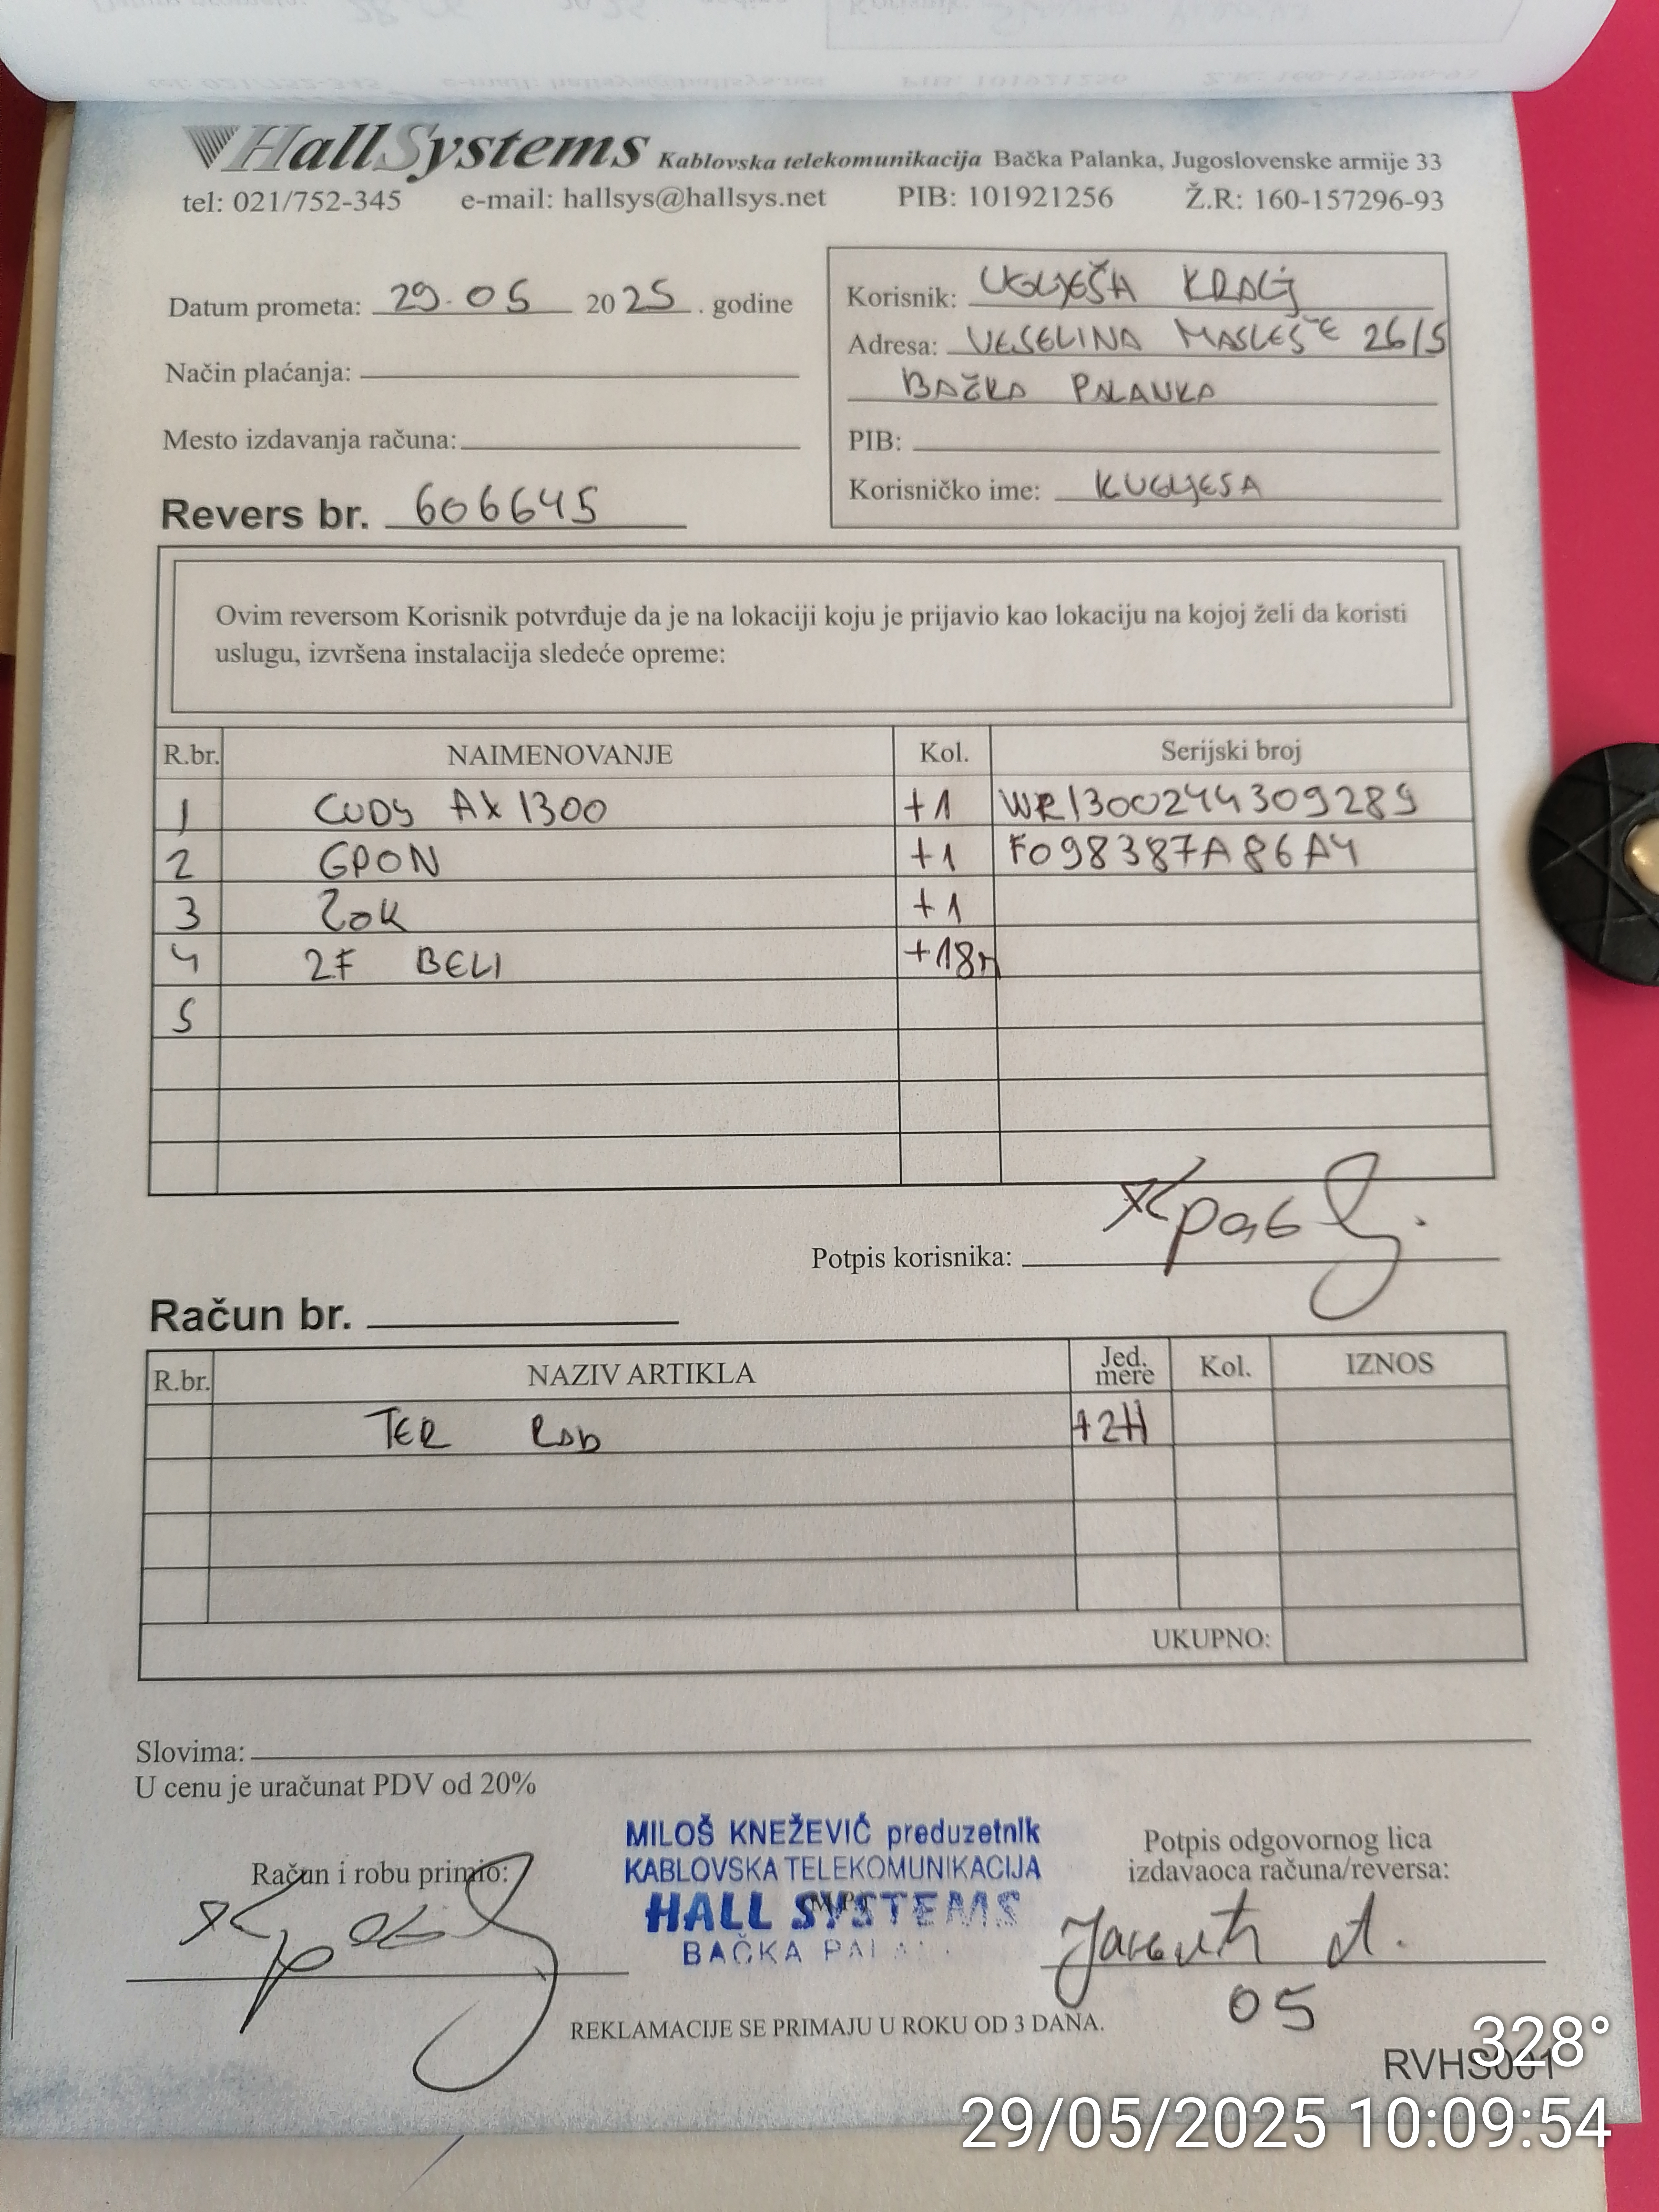 HallSystems Kablovska telekomunikacija Bačka Palanka, Jugoslovenske armije 33
tel: 021/752-345 e-mail: hallsys@hallsys.net PIB: 101921256 Ž.R: 160-157296-93
Datum prometa: 29.05 2025. godine
Način plaćanja:
Mesto izdavanja računa:
Revers br. 606645
Korisnik: UGLJEŠA
Adresa: VESELINA MASLEŠE 26/5
BAČKA PALANKA
PIB:
Korisničko ime: KUGLJESA
Ovim reversom Korisnik potvrđuje da je na lokaciji koju je prijavio kao lokaciju na kojoj želi da koristi
uslugu, izvršena instalacija sledeće opreme:
R.br. NAIMENOVANJE Kol. Serijski broj
1 CUDY AX 1300 +1 WR1300244309289
2 GPON +1 F098387A86A4
3 ZOK +1
4 2F BELI +18m
5
Potpis korisnika: Краљ
Račun br.
R.br. NAZIV ARTIKLA Jed. mere Kol. IZNOS
TER RAD +2H
UKUPNO:
Slovima:
U cenu je uračunat PDV od 20%
Račun i robu primio:
MILOŠ KNEŽEVIĆ preduzetnik
KABLOVSKA TELEKOMUNIKACIJA
HALL SYSTEMS
BAČKA
Potpis odgovornog lica
izdavaoca računa/reversa:
05
REKLAMACIJE SE PRIMAJU U ROKU OD 3 DANA.
328°
RVHS001
29/05/2025 10:09:54